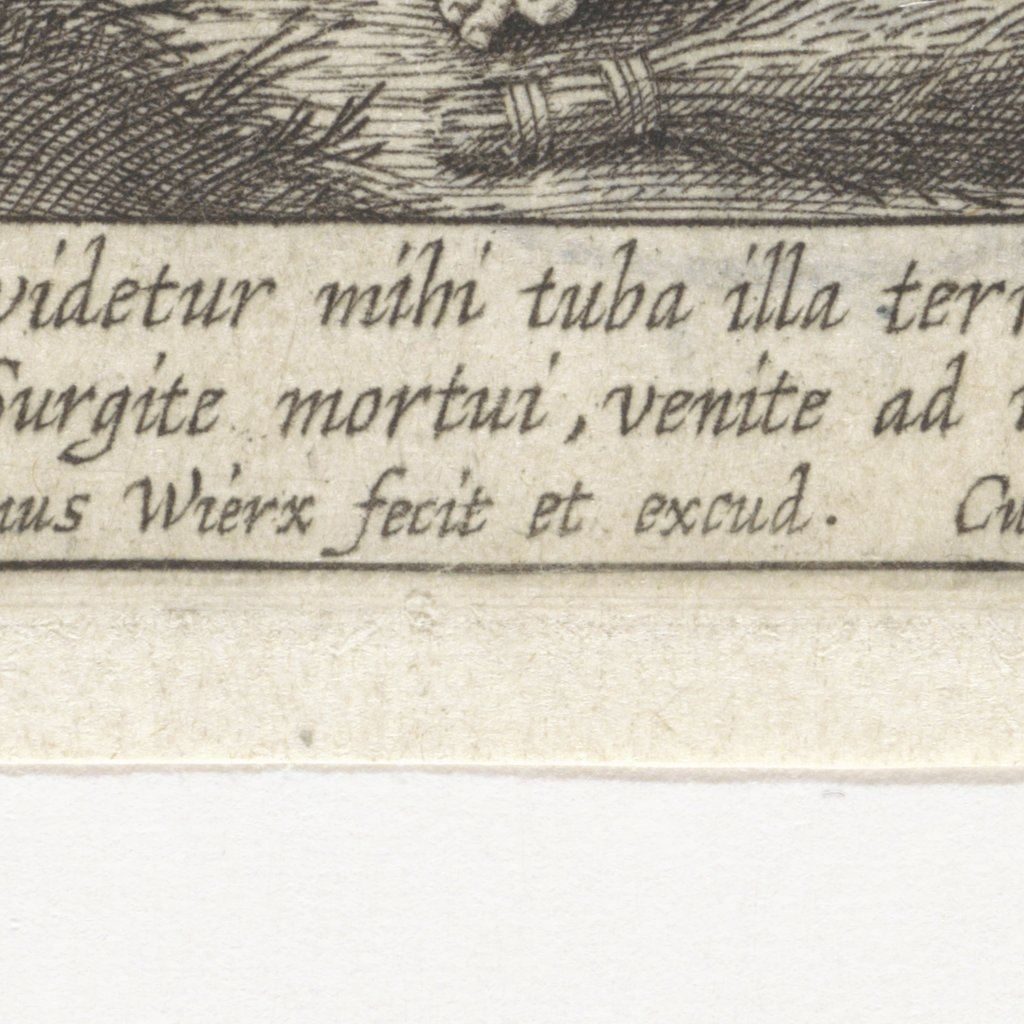 videtur mihi tuba illa terr
Surgite mortui, venite ad
nus Wierx fecit et excud. Cu